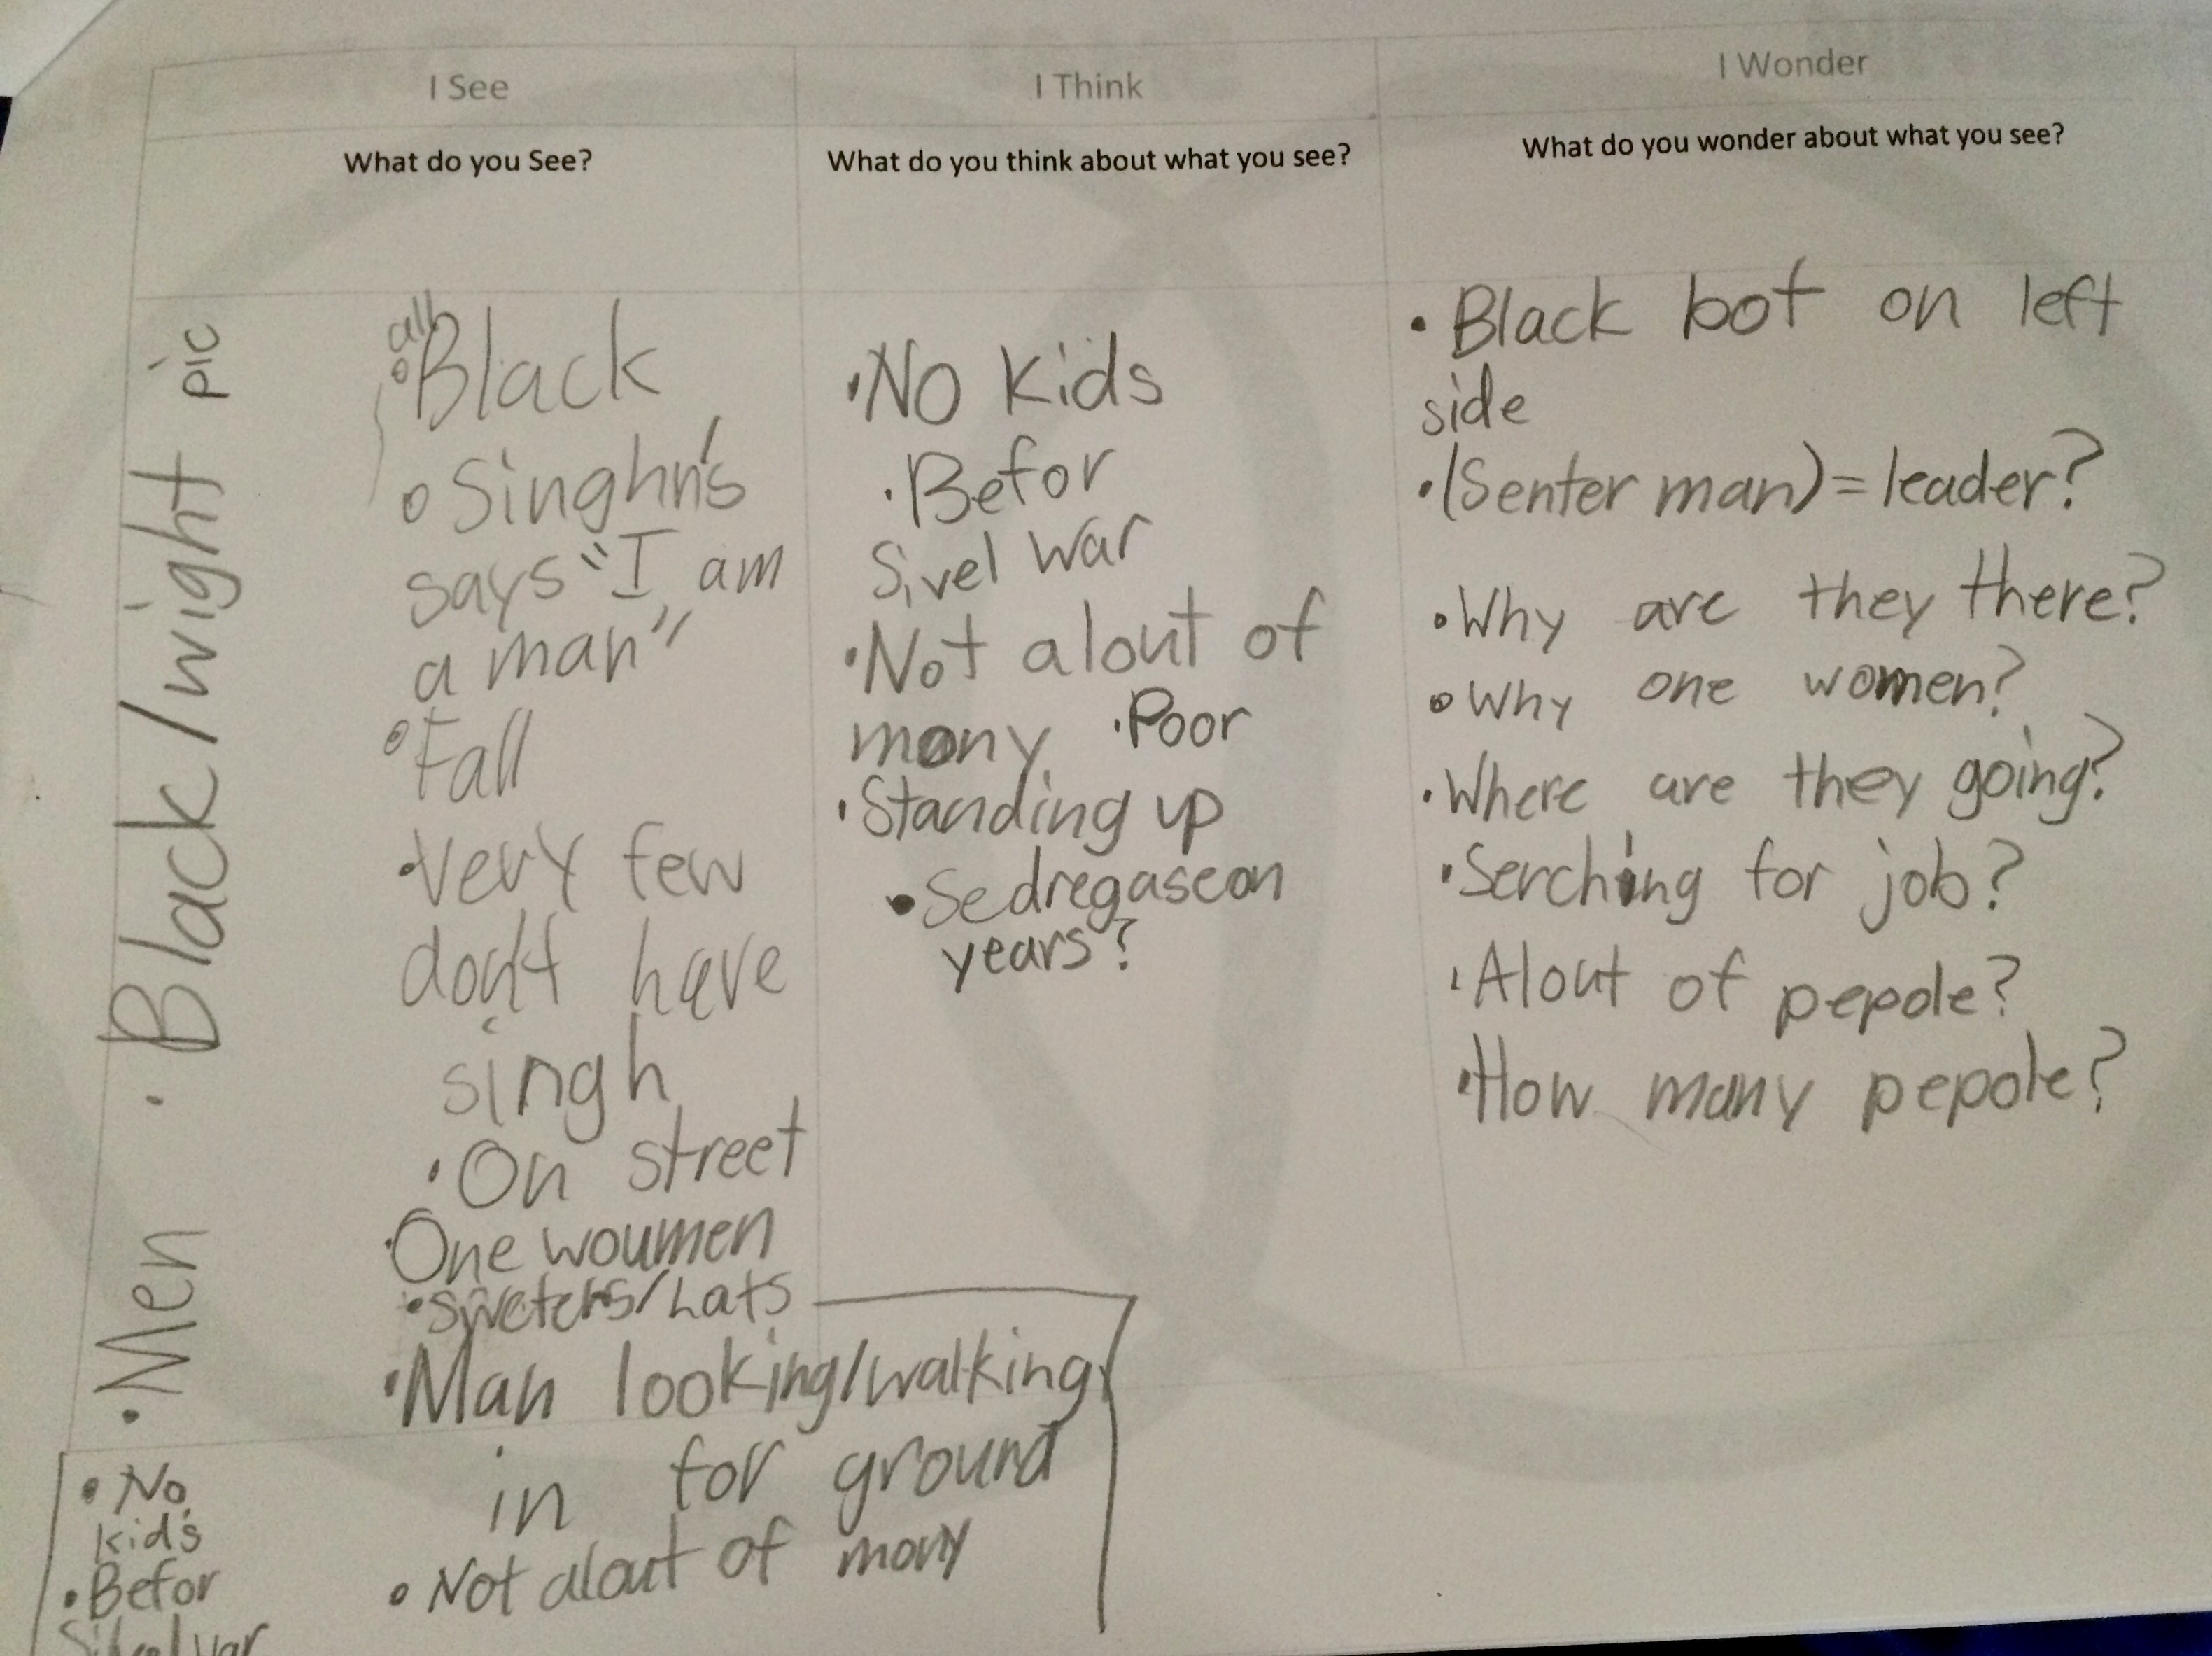 I See
What do you See?
all
Black
Singhn's
says "I am
a man"
Fall
Very few
don't have
singh
On street
One woumen
sweters/hats
Man looking/walking
in for ground
Not alout of mony
Black/wight pic
Men
No
kids
Befor
I Think
What do you think about what you see?
No kids
Befor
Sivel war
Not alout of
mony. Poor
Standing up
Sedregaseon
years?
I Wonder
What do you wonder about what you see?
Black bot on left
side
(Senter man) = leader?
Why are they there?
Why one women?
Where are they going?
Serching for job?
Alout of pepole?
How many pepole?